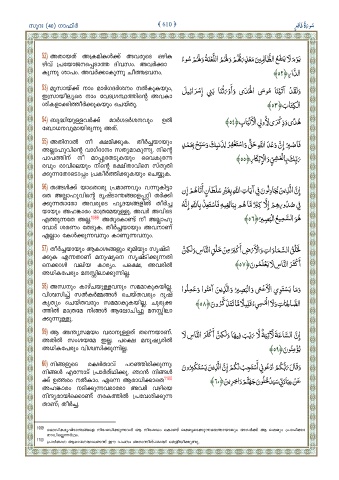 സൂറ: (40) ഗാഫിർ
﴾ 610 ﴿
سورة غافر
52) അതായത് അക്രമികൾക്ക് അവരുടെ ഒഴിക
ഴിവ് പ്രയോജനപ്പെടാത്ത ദിവസം. അവർക്കാ
കുന്നു ശാപം. അവർക്കാകുന്നു ചീത്തഭവനം.
يَوْمَ لَا يَنفَعُ الظَّالِمِينَ مَعْذِرَتُهُمْ وَلَهُمُ اللَّعْنَةُ وَلَهُمْ سُوءُ
الدَّارِ ﴿٥٢﴾
53) മൂസായ്ക്ക് നാം മാർഗദർശനം നൽകുകയും,
ഇസ്രായീല്യരെ നാം വേദഗ്രന്ഥത്തിന്റെ അവകാ
ശികളാക്കിത്തീർക്കുകയും ചെയ്തു.
وَلَقَدْ آتَيْنَا مُوسَى الْهُدَىٰ وَأَوْرَثْنَا بَنِي إِسْرَائِيلَ
الْكِتَابَ ﴿٥٣﴾
54) ബുദ്ധിയുള്ളവർക്ക് മാർഗദർശനവും ഉൽ
ബോധനവുമായിരുന്നു അത്.
هُدًى وَذِكْرَىٰ لِأُولِي الْأَلْبَابِ ﴿٥٤﴾
55) അതിനാൽ നീ ക്ഷമിക്കുക. തീർച്ചയായും
അല്ലാഹുവിന്റെ വാഗ്ദാനം സത്യമാകുന്നു. നിന്റെ
പാപത്തിന് നീ മാപ്പുതേടുകയും വൈകുന്നേ
രവും രാവിലെയും നിന്റെ രക്ഷിതാവിനെ സ്തുതി
ക്കുന്നതോടൊപ്പം പ്രകീർത്തിക്കുകയും ചെയ്യുക.
فَاصْبِرْ إِنَّ وَعْدَ اللَّهِ حَقٌّ وَاسْتَغْفِرْ لِذَنبِكَ وَسَبِّحْ بِحَمْدِ
رَبِّكَ بِالْعَشِيِّ وَالْإِبْكَارِ ﴿٥٥﴾
56) തങ്ങൾക്ക് യാതൊരു പ്രമാണവും വന്നുകിട്ടാ
തെ അല്ലാഹുവിന്റെ ദൃഷ്ടാന്തങ്ങളെപ്പറ്റി തർക്കി
ക്കുന്നതാരോ അവരുടെ ഹൃദയങ്ങളിൽ തീർച്ച
യായും അഹങ്കാരം മാത്രമേയുള്ളൂ. അവർ അവിടെ
എത്തുന്നതേ അല്ല. അതുകൊണ്ട് നീ അല്ലാഹു
വോട് ശരണം തേടുക. തീർച്ചയായും അവനാണ്
എല്ലാം കേൾക്കുന്നവനും കാണുന്നവനും.
إِنَّ الَّذِينَ يُجَادِلُونَ فِي آيَاتِ اللَّهِ بِغَيْرِ سُلْطَانٍ أَتَاهُمْ إِن
فِي صُدُورِهِمْ إِلَّا كِبْرٌ مَّا هُم بِبَالِغِيهِ فَاسْتَعِذْ بِاللَّهِ إِنَّهُ
هُوَ السَّمِيعُ الْبَصِيرُ ﴿٥٦﴾
57) തീർച്ചയായും ആകാശങ്ങളും ഭൂമിയും സൃഷ്ടി
ക്കുക എന്നതാണ് മനുഷ്യരെ സൃഷ്ടിക്കുന്നതി
നെക്കാൾ വലിയ കാര്യം. പക്ഷേ, അവരിൽ
അധികപേരും മനസ്സിലാക്കുന്നില്ല.
لَخَلْقُ السَّمَاوَاتِ وَالْأَرْضِ أَكْبَرُ مِنْ خَلْقِ النَّاسِ وَلَٰكِنَّ
أَكْثَرَ النَّاسِ لَا يَعْلَمُونَ ﴿٥٧﴾
58) അന്ധനും കാഴ്ചയുള്ളവനും സമമാകുകയില്ല.
വിശ്വസിച്ച് സൽകർമങ്ങൾ ചെയ്തവരും ദുഷ്
കൃത്യം ചെയ്തവരും സമമാകുകയില്ല. ചുരുക്ക
ത്തിൽ മാത്രമേ നിങ്ങൾ ആലോചിച്ചു മനസ്സിലാ
ക്കുന്നുള്ളൂ.
وَمَا يَسْتَوِي الْأَعْمَىٰ وَالْبَصِيرُ وَالَّذِينَ آمَنُوا وَعَمِلُوا
الصَّالِحَاتِ وَلَا الْمُسِيءُ قَلِيلًا مَّا تَتَذَكَّرُونَ ﴿٥٨﴾
59) ആ അന്ത്യസമയം വരാനുള്ളത് തന്നെയാണ്.
അതിൽ സംശയമേ ഇല്ല. പക്ഷേ മനുഷ്യരിൽ
അധികപേരും വിശ്വസിക്കുന്നില്ല.
إِنَّ السَّاعَةَ لَآتِيَةٌ لَّا رَيْبَ فِيهَا وَلَٰكِنَّ أَكْثَرَ النَّاسِ لَا
يُؤْمِنُونَ ﴿٥٩﴾
60) നിങ്ങളുടെ രക്ഷിതാവ് പറഞ്ഞിരിക്കുന്നു:
നിങ്ങൾ എന്നോട് പ്രാർത്ഥിക്കൂ. ഞാൻ നിങ്ങൾ
ക്ക് ഉത്തരം നൽകാം. എന്നെ ആരാധിക്കാതെ
അഹങ്കാരം നടിക്കുന്നവരാരോ അവർ വഴിയെ
നിന്ദ്യരായിക്കൊണ്ട് നരകത്തിൽ പ്രവേശിക്കുന്ന
താണ്; തീർച്ച.
وَقَالَ رَبُّكُمُ ادْعُونِي أَسْتَجِبْ لَكُمْ إِنَّ الَّذِينَ يَسْتَكْبِرُونَ
عَنْ عِبَادَتِي سَيَدْخُلُونَ جَهَنَّمَ دَاخِرِينَ ﴿٦٠﴾